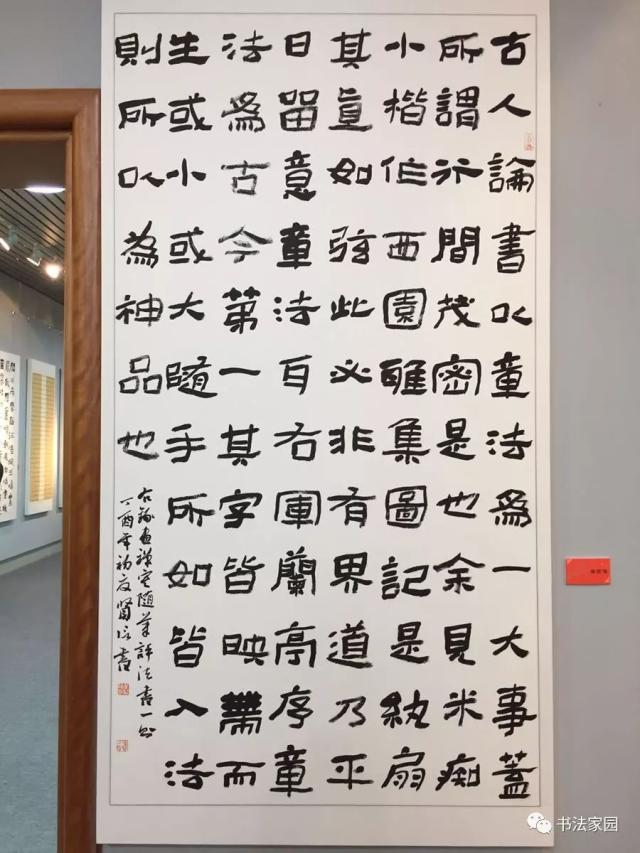 古人論書以章法爲一大事蓋
所謂行間茂密是也余見米痴
小楷作西園雅集圖記是紈扇
其直如弦此必非有界道乃平
日留意章法耳右軍蘭亭序章
法爲古今第一其字皆映帶而
生或小或大隨手所如皆入法
則所以為神品也
右録畫禪室随筆評法書一則
丁酉年初夏賢書
书法家园